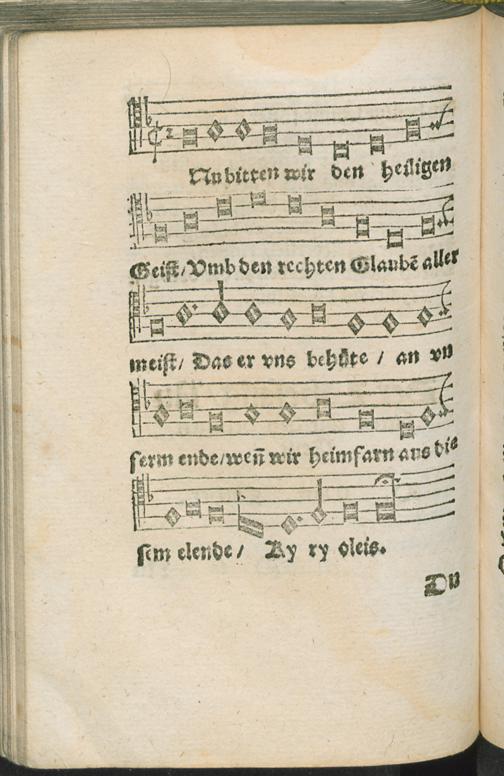 Nu bitten wir den heiligen
Geist/ Vmb den rechten Glaubē aller
meist/ Das er vns behüte / an vn
serm ende/ weñ wir heimfarn aus die
sem elende / Ky ry oleis.
Du